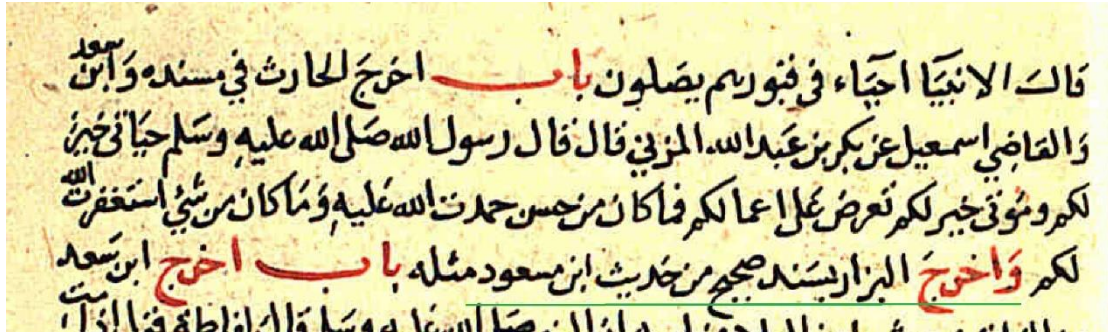 قال الانبيا احياء في قبورهم يصلون باب اخرج الحارث في مسنده وابن سعد
والقاضي اسمعيل عن بكر بن عبد الله المزني قال قال رسول الله صلى الله عليه وسلم حياتي خير
لكم وموتي خير لكم تعرض على اعمالكم فما كان من حسن حمدت الله عليه وما كان من شيئ استغفرت الله
لكم واخرج البزار بسند صحيح من حديث ابن مسعود مثله باب اخرج ابن سعد